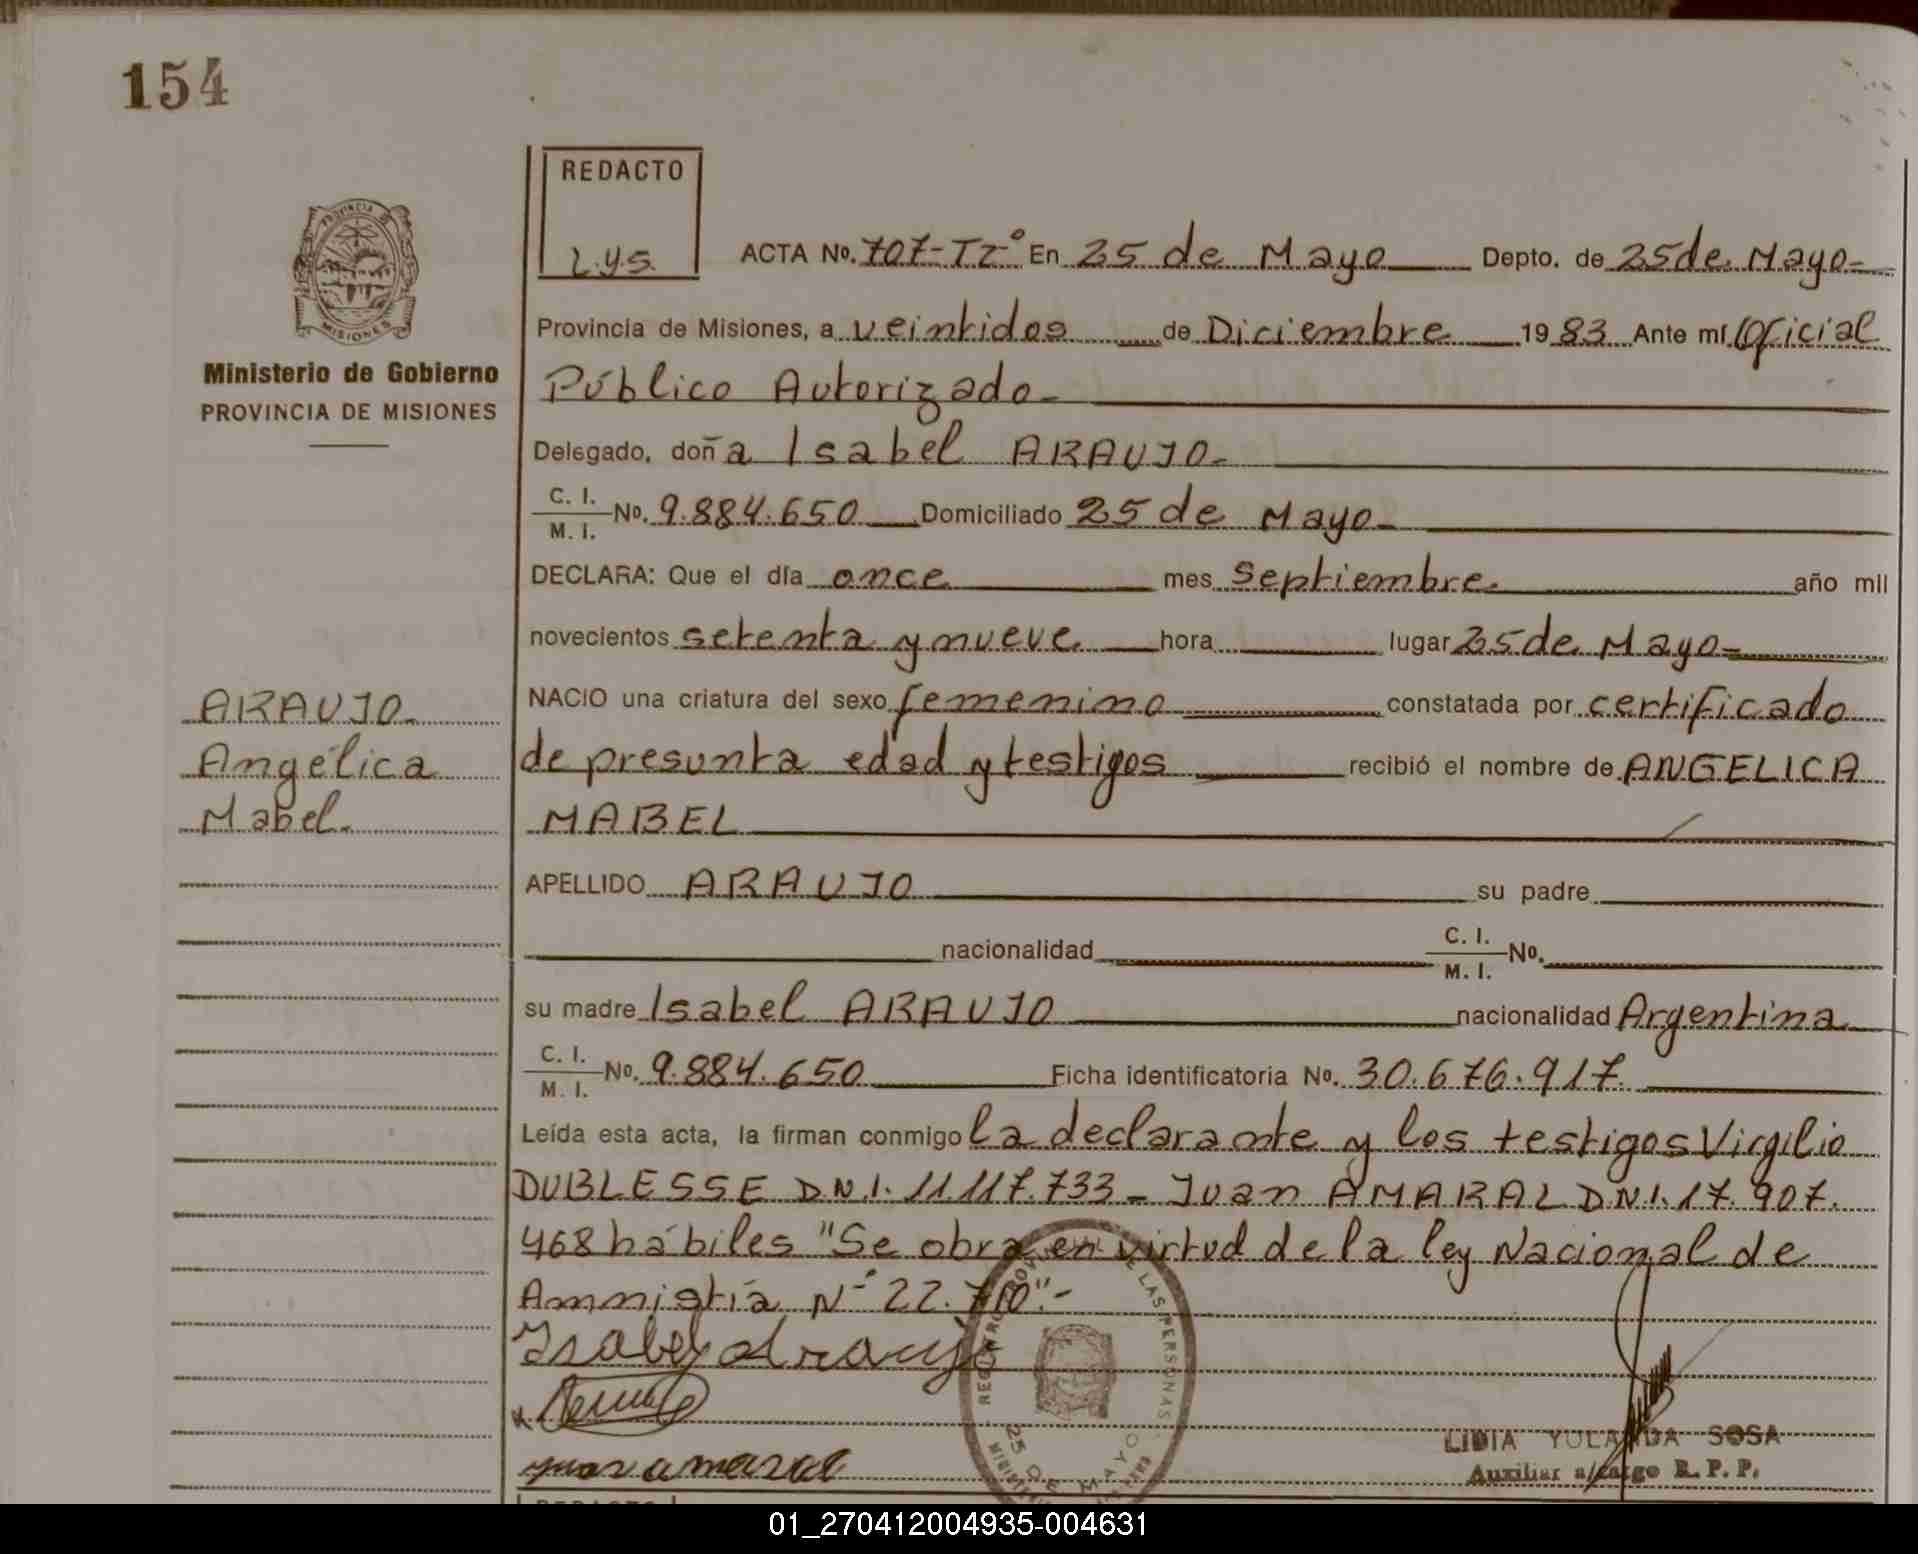 154
REDACTO
L.y.s.
PROVINCIA DE
MISIONES
Ministerio de Gobierno
PROVINCIA DE MISIONES
ACTA No. 707-Tz° En 25 de Mayo Depto. de 25 de Mayo-
Provincia de Misiones, a veintidos de Diciembre 1983 Ante mí Oficial
Público Autorizado-
Delegado, doña Isabel ARAUJO-
C. I.
M. I. No. 9.884.650 Domiciliado 25 de Mayo-
DECLARA: Que el día once mes Septiembre año mil
novecientos setenta y nueve hora lugar 25 de Mayo-
NACIO una criatura del sexo femenino constatada por certificado
de presunta edad y testigos recibió el nombre de ANGELICA
MABEL
ARAUJO-
Angélica
Mabel.
APELLIDO ARAUJO su padre
nacionalidad C. I.
M. I. No.
su madre Isabel ARAUJO nacionalidad Argentina
C. I.
M. I. No. 9.884.650 Ficha identificatoria No. 30.676.917
Leída esta acta, la firman conmigo la declarante y los testigos Virgilio
DUBLESSE D.N.I. 11.117.733 - Juan AMARAL D.N.I. 17.907.
468 hábiles "Se obra en virtud de la ley Nacional de
Amnistía N° 22.710".-
Isabel Araujo
juan amaral
25 DE MAYO
LIDIA YOLANDA SOSA
Auxiliar a/cargo R. P. P.
REDACTO
01_270412004935-004631